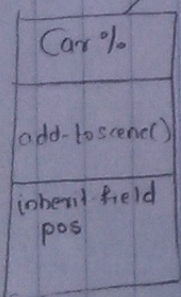 Car%
add-toscene()
inherit-field
pos